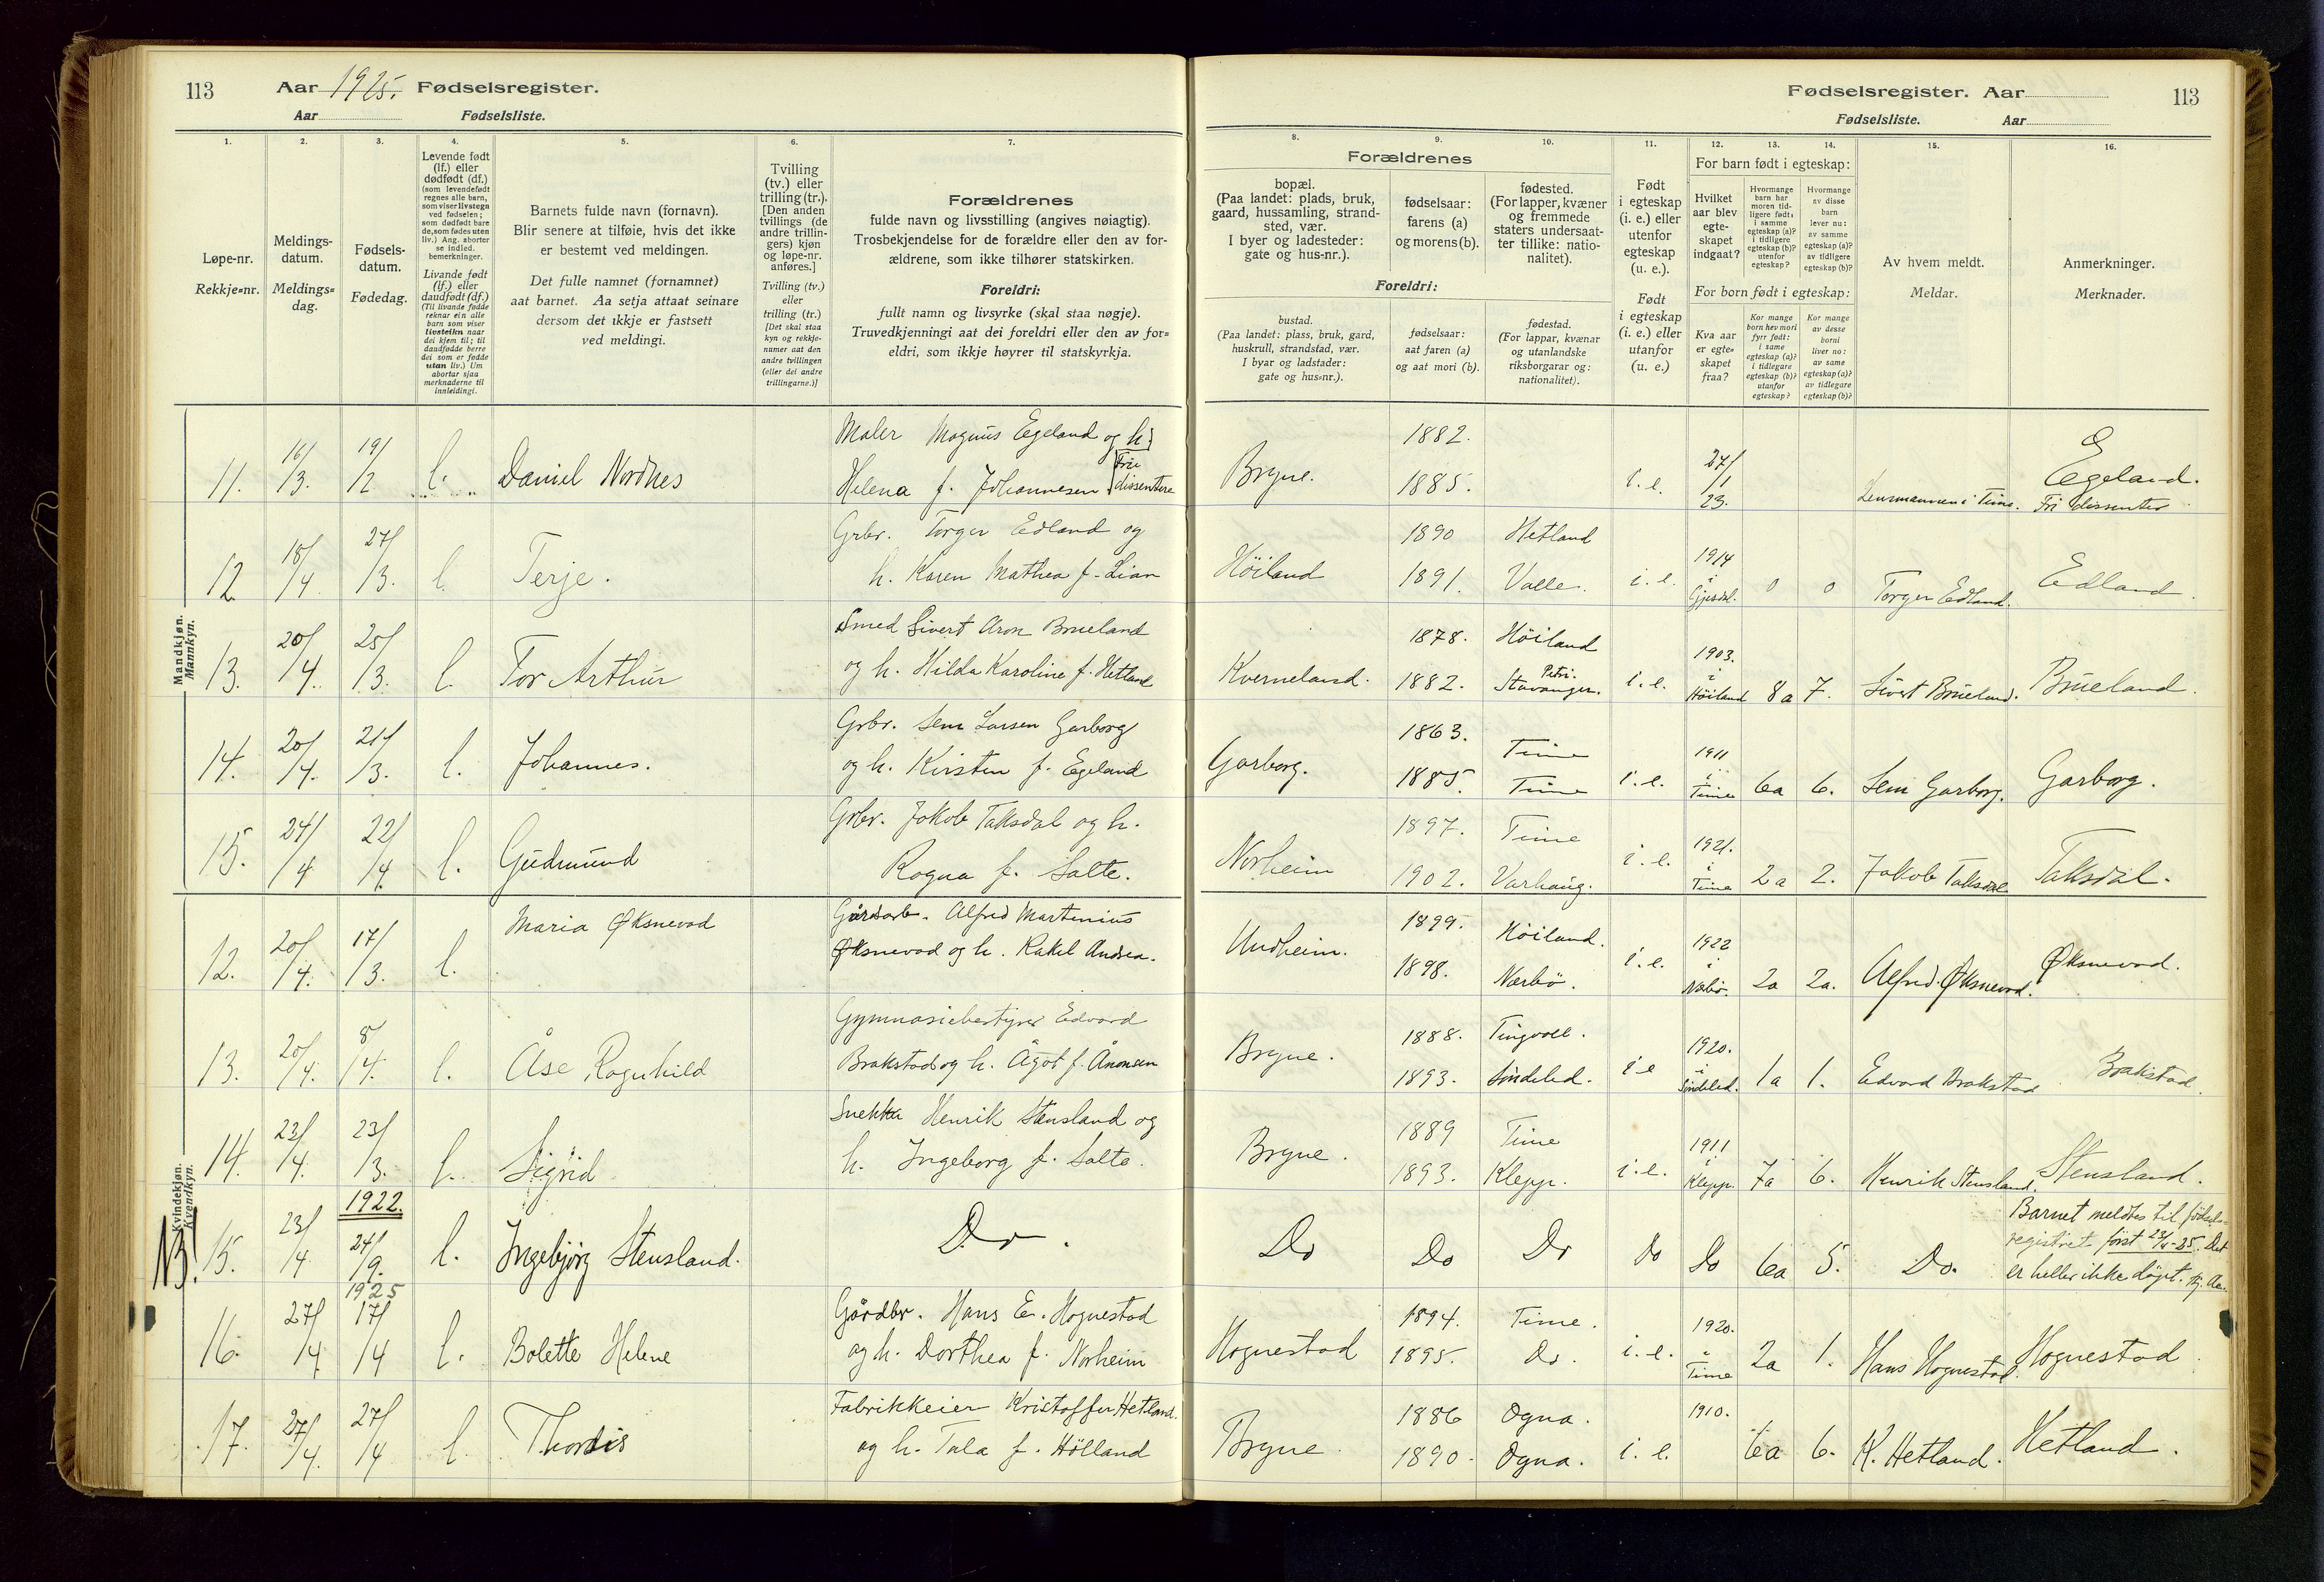 113 Aar 1925. Fødselsregister.
Aar Fødselsliste.
Fødselsregister. Aar 113
Fødselsliste. Aar
1. 2. 3. 4. 5. 6. 7.
Løpe-nr.
Rekkje=nr.
Meldings-
datum.
Meldings=
dag.
Fødsels-
datum.
Fødedag.
Levende født
(lf.) eller
dødfødt (df.)
(som levendefødt
regnes alle barn,
som viser livstegn
ved fødselen;
som dødfødt bare
de, som fødes uten
liv.) Ang. aborter
se indled.
bemerkninger.
Livande født
(lf.) eller
daudfødt (df.)
(Til livande fødde
reknar ein alle
barn som viser
livsteikn naar
dei kjem til; til
daudfødde berre
dei som er fødde
utan liv.) Um
abortar sjaa
merknaderne til
innleidingi.
Barnets fulde navn (fornavn).
Blir senere at tilføie, hvis det ikke
er bestemt ved meldingen.
Det fulle namnet (fornamnet)
aat barnet. Aa setja attaat seinare
dersom det ikkje er fastsett
ved meldingi.
Tvilling
(tv.) eller
trilling (tr.).
[Den anden
tvillings (de
andre trillin-
gers) kjøn
og løpe-nr.
anføres.]
Tvilling (tv.)
eller
trilling (tr.)
[Det skal staa
kyn og rekkje-
numer aat den
andre tvillingen
(eller dei andre
trillingarne.)]
Forældrenes
fulde navn og livsstilling (angives nøiagtig).
Trosbekjendelse for de forældre eller den av for-
ældrene, som ikke tilhører statskirken.
Foreldri:
fullt namn og livsyrke (skal staa nøgje).
Truvedkjenningi aat dei foreldri eller den av for=
eldri, som ikkje høyrer til statskyrkja.
8. 9. 10. 11. 12. 13. 14. 15. 16.
Forældrenes
bopæl.
(Paa landet: plads, bruk,
gaard, hussamling, strand-
sted, vær.
I byer og ladesteder:
gate og hus-nr.).
fødselsaar:
farens (a)
og morens (b).
fødested.
(For lapper, kvæner
og fremmede
staters undersaat-
ter tillike: natio-
nalitet).
Foreldri:
bustad.
(Paa landet: plass, bruk, gard,
huskrull, strandstad, vær.
I byar og ladstader:
gate og hus=nr.).
fødselsaar:
aat faren (a)
og aat mori (b).
fødestad.
(For lappar, kvænar
og utanlandske
riksborgarar og:
nationalitet).
Født
i egteskap
(i. e.) eller
utenfor
egteskap
(u. e.).
Født
i egteskap
(i. e.) eller
utanfor
(u. e.).
For barn født i egteskap:
Hvilket
aar blev
egte-
skapet
indgaat?
Hvormange
barn har
moren tid-
ligere født:
i samme
egteskap (a)?
i tidligere
egteskap (b)?
utenfor
egteskap?
Hvormange
av disse
barn
lever nu:
av samme
egteskap (a)?
av tidligere
egteskap (b)?
For born født i egteskap:
Kva aar
er egte=
skapet
fraa?
Kor mange
born hev mori
fyrr født:
i same
egteskap (a)?
i tidlegare
egteskap (b)?
utanfor
egteskap?
Kor mange
av desse
borni
liver no:
av same
egteskap (a)?
av tidlegare
egteskap (b)?
Av hvem meldt.
Meldar.
Anmerkninger.
Merknader.
Mandkjøn.
Mannkyn.
11. 16/3. 19/2 l. Daniel Nordnes
Maler Magnus Egeland og h.
Helena f. Johannesen
Fri
dissentere
Bryne. 1882. 1885. i. e. 27/1 23. Lensmannen i Time. Egeland.
Fri dissenter
12 18/4 27/3. l. Terje.
Grbr. Torger Edland og
h. Karen Mathea f. Lian
Høiland 1890 Hetland
1891. Valle. i. e. 1914 i Gjesdal. 0 0 Torger Edland. Edland.
13. 20/4. 25/3. l. Tor Arthur
Smed Sivert Aron Brueland
og h. Hilda Karoline f. Hetland
Kverneland. 1878. Høiland
1882. Petri. Stavanger. i. e. 1903. i Høiland 8a 7. Sivert Brueland. Brueland.
14. 20/4. 21/3. l. Johannes.
Grbr. Sem Larsen Garborg
og h. Kirsten f. Egeland
Garborg. 1863. Time
1885. Time i. e. 1911 i Time 6a 6. Sem Garborg. Garborg.
15. 24/4 22/4. l. Gudmund
Grbr. Jakob Taksdal og h.
Ragna f. Salte.
Norheim 1897. Time
1902. Varhaug. i. e. 1921. i Time 2a 2. Jakob Taksdal Taksdal.
Kvindekjøn.
Kvendkyn.
12. 20/4. 17/3. l. Maria Øksnevad
Gårdarb. Alfred Martinius
Øksnevad og h. Rakel Andrea.
Undheim. 1899. Høiland.
1898. Nærbø. i. e. 1922 i Nærbø. 2a 2a. Alfred Øksnevad. Øksnevad.
13. 20/4. 8/4. l. Åse Ragnhild
Gymnasiebestyrer Edvard
Brakstad og h. Ågot f. Ånonsen
Bryne. 1888. Tingvoll.
1893. Søndeled. i e 1920. i Søndeled. 1a 1. Edvard Brakstad Brakstad.
14. 23/4. 23/3. l. Sigrid
Snekker Henrik Stensland og
h. Ingeborg f. Salte.
Bryne. 1889 Time
1893. Klepp. i. e. 1911 i Klepp. 7a 6. Henrik Stensland. Stensland.
1922.
NB! 15. 23/4. 24/9. l. Ingebjørg Stensland. Do.
Do Do Do Do Do 6a 5. Do.
Barnet meldtes til fødsels-
registret først 23/4-25. Det
er heller ikke døpt.
1925
16. 27/4 17/4 l. Bolette Helene
Gårdbr. Hans E. Hognestad
og h. Dorthea f. Norheim
Hognestad 1894. Time.
1895. Do. i. e. 1920. i Time 2a 1. Hans Hognestad. Hognestad.
17. 27/4. 27/4 l. Thordis
Fabrikkeier Kristoffer Hetland.
og h. Tala f. Hølland
Bryne. 1886 Ogna.
1890. Ogna. i. e. 1910. 6a 6. K. Hetland. Hetland.